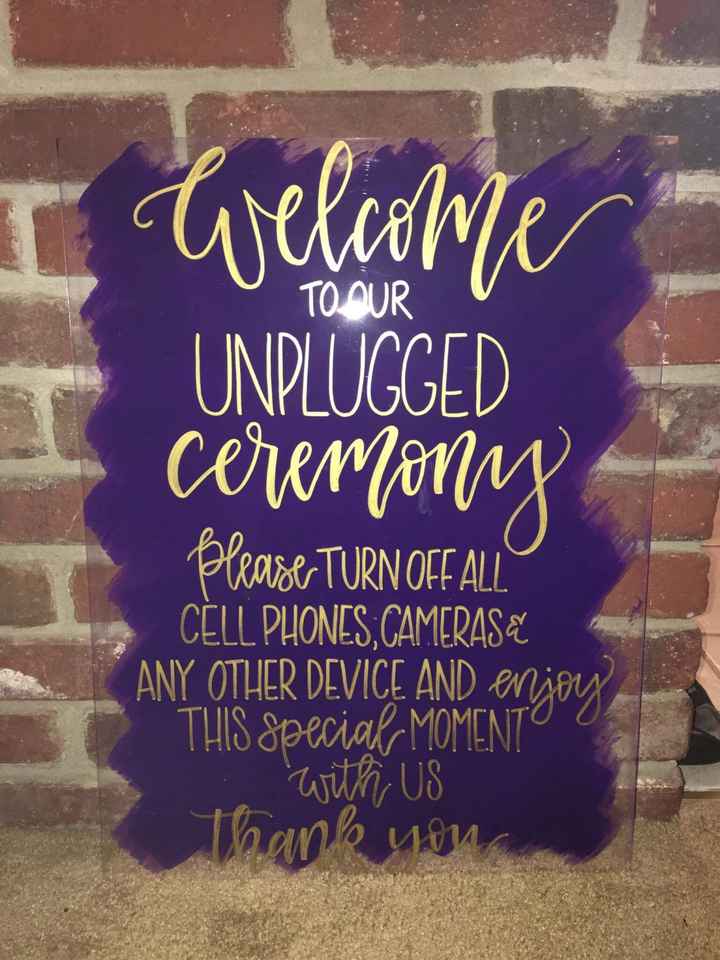 Welcome
TO OUR
UNPLUGGED
ceremony
please TURN OFF ALL
CELL PHONES, CAMERAS &
ANY OTHER DEVICE AND enjoy
THIS special MOMENT
with US
Thank you